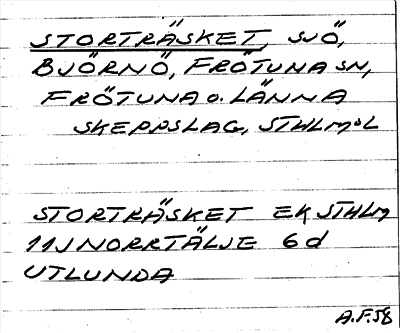 STORTRÄSKET, SJÖ,
BJÖRNÖ, FRÖTUNA SN,
FRÖTUNA O. LÄNNA
SKEPPSLAG, STHLMSL
STORTRÄSKET EK STHLM
11J NORRTÄLJE 6d
UTLUNDA
A.F.58